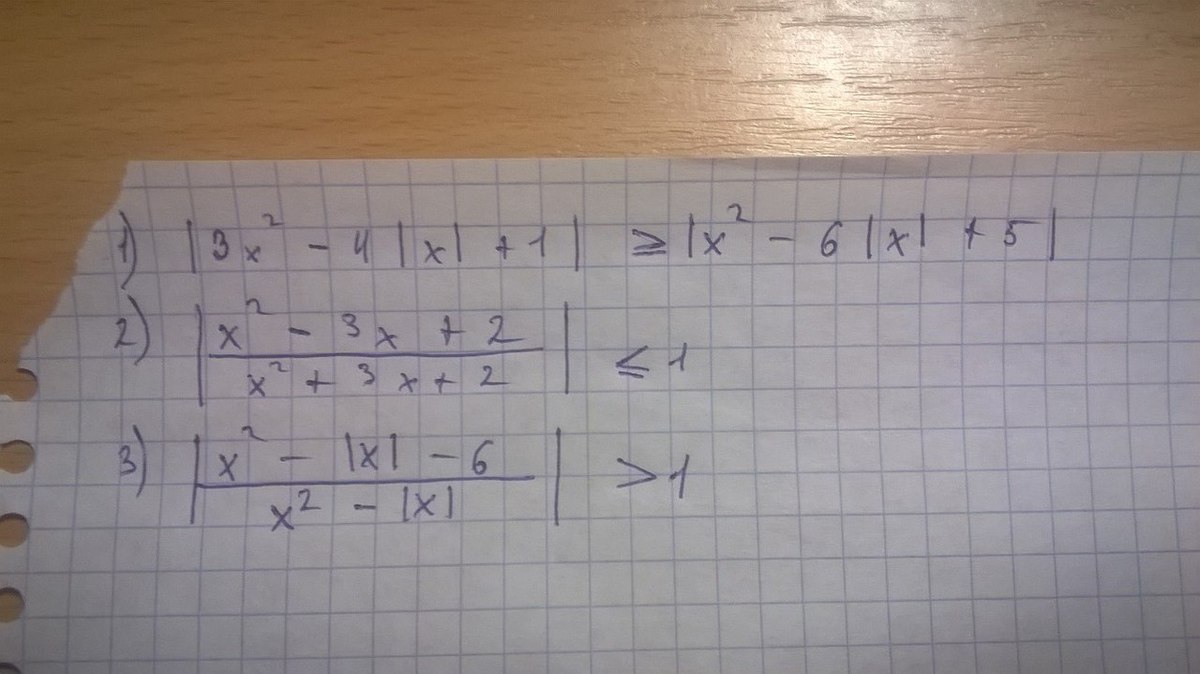 1) |3x² - 4|x| + 1| ≥ |x² - 6|x| + 5|
2) |(x² - 3x + 2)/(x² + 3x + 2)| ≤ 1
3) |(x² - |x| - 6)/(x² - |x|)| > 1